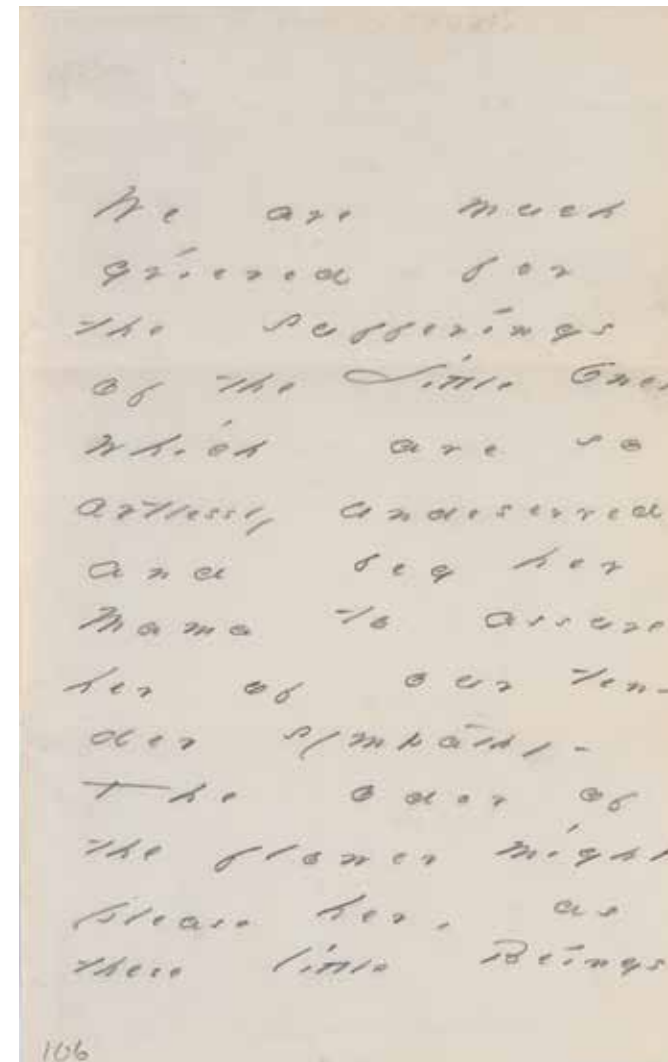 We are much
grieved for
the sufferings
of the Little Ones
which are so
artlessly undeserved
and beg her
Mama to assure
her of our ten-
der sympathy -
The odor of
the flower might
please her, as
these little Beings
106